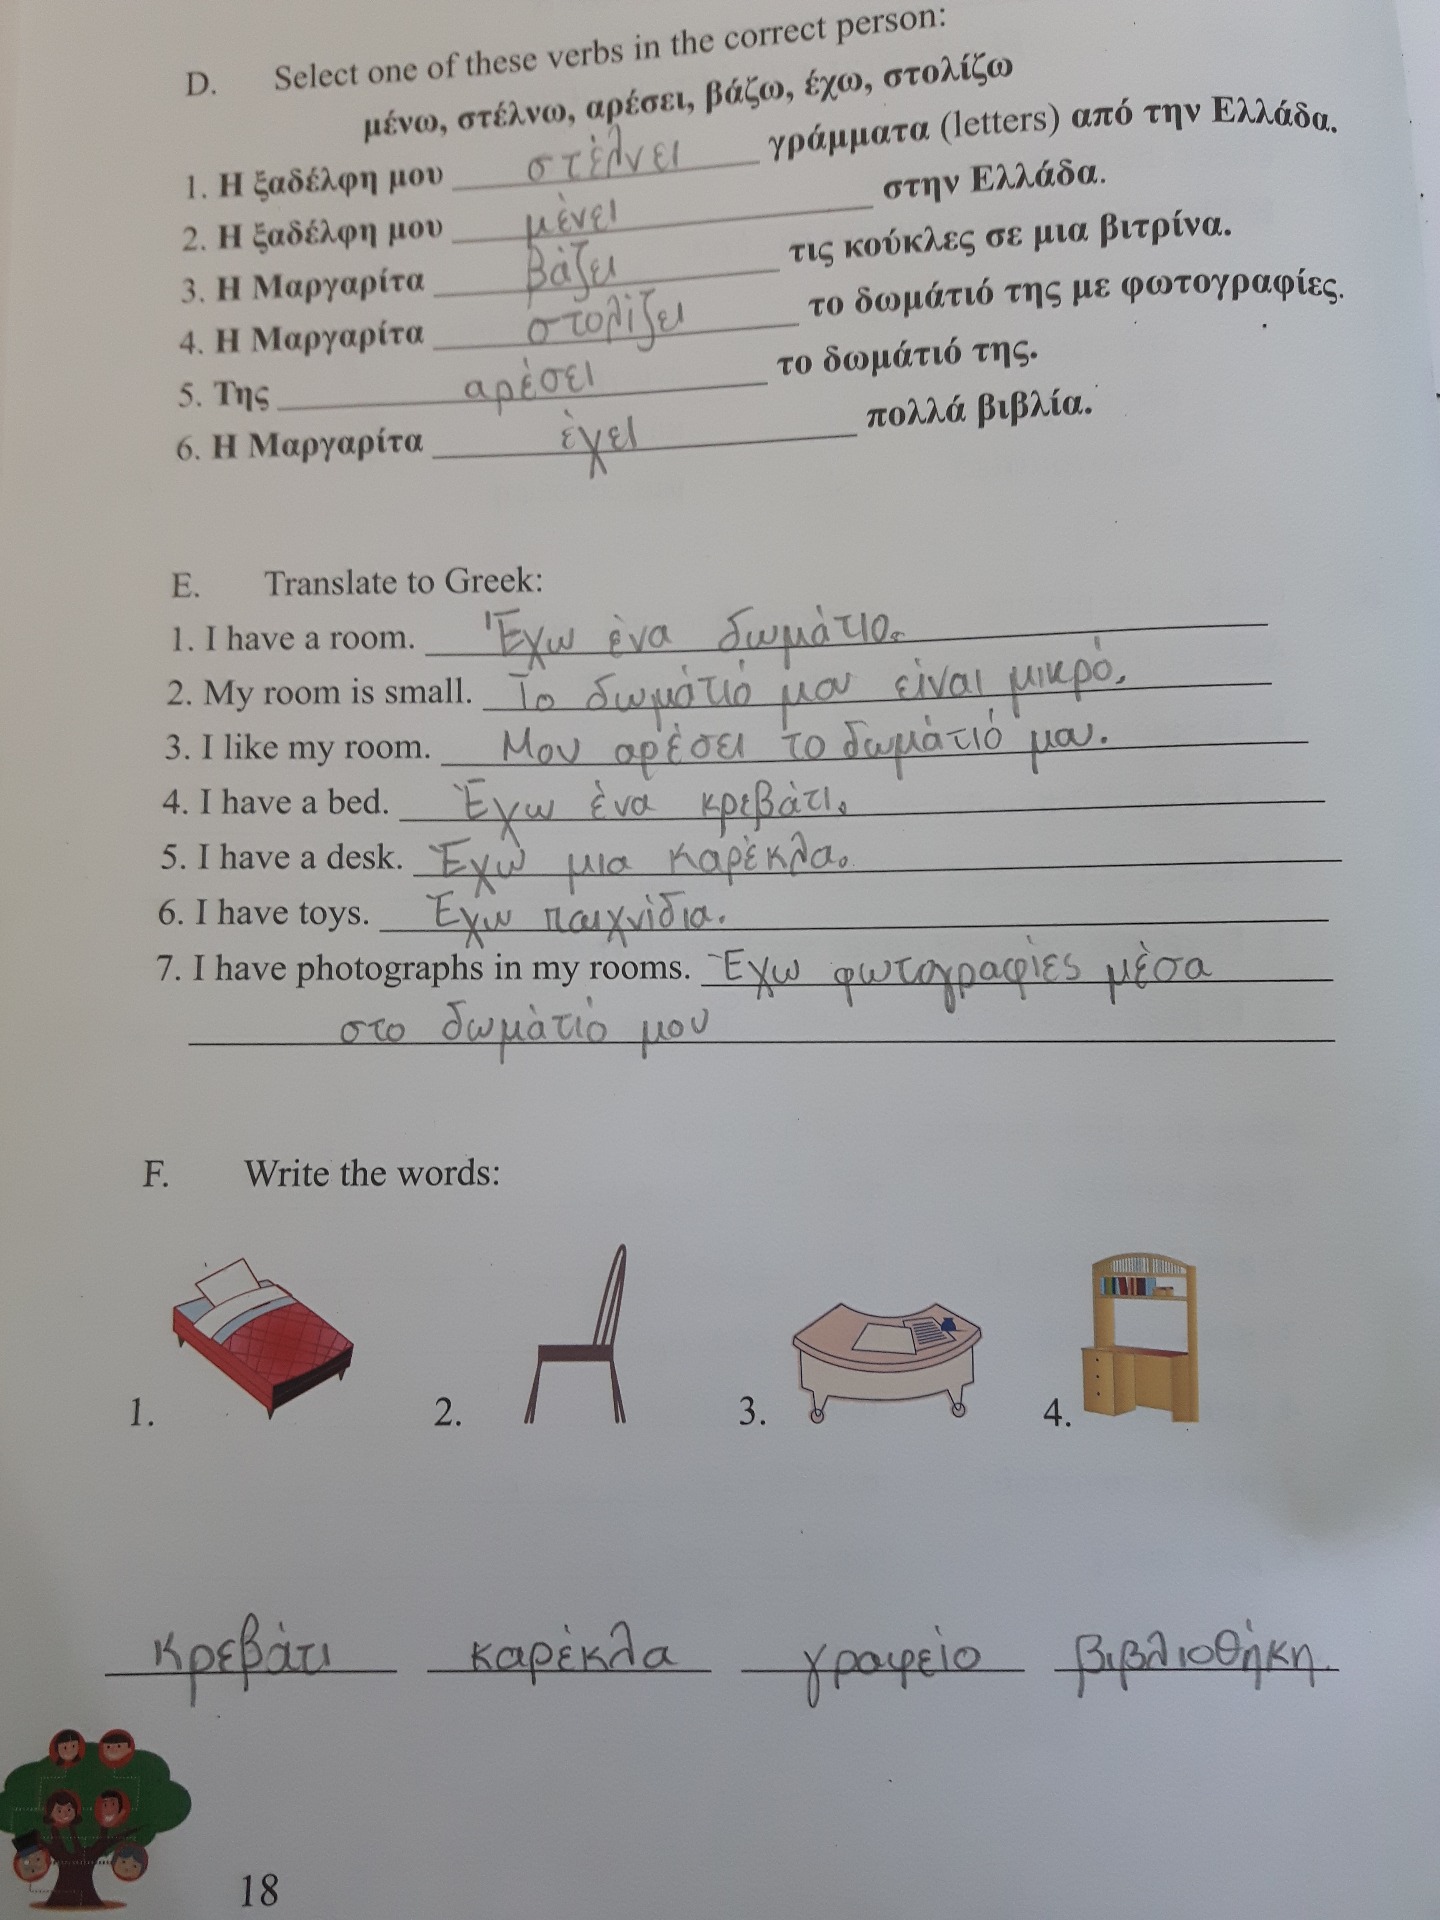 D. Select one of these verbs in the correct person:
μένω, στέλνω, αρέσει, βάζω, έχω, στολίζω
1. Η ξαδέλφη μου στέλνει γράμματα (letters) από την Ελλάδα.
2. Η ξαδέλφη μου μένει στην Ελλάδα.
3. Η Μαργαρίτα βάζει τις κούκλες σε μια βιτρίνα.
4. Η Μαργαρίτα στολίζει το δωμάτιό της με φωτογραφίες.
5. Της αρέσει το δωμάτιό της.
6. Η Μαργαρίτα έχει πολλά βιβλία.
E. Translate to Greek:
1. I have a room. Έχω ένα δωμάτιο.
2. My room is small. Το δωμάτιό μου είναι μικρό.
3. I like my room. Μου αρέσει το δωμάτιό μου.
4. I have a bed. Έχω ένα κρεβάτι.
5. I have a desk. Έχω μια καρέκλα.
6. I have toys. Έχω παιχνίδια.
7. I have photographs in my rooms. Έχω φωτογραφίες μέσα
στο δωμάτιό μου
F. Write the words:
1. 2. 3. 4.
κρεβάτι καρέκλα γραφείο βιβλιοθήκη.
18